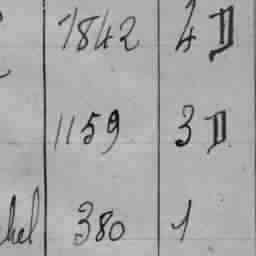 1842 4 D
1159 3 D
hel 380 1